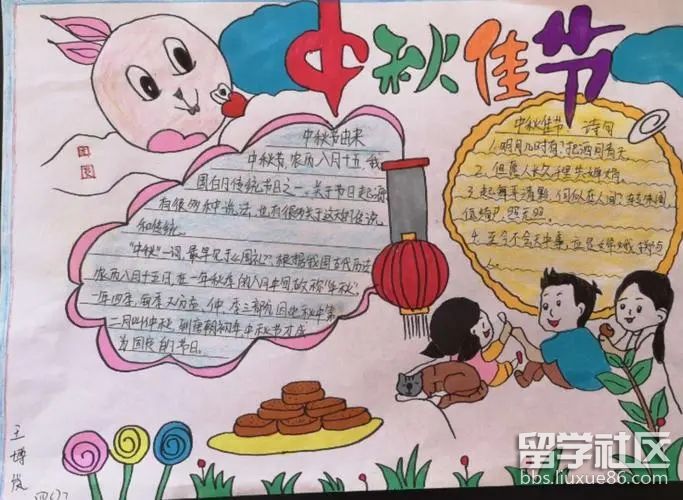 中秋佳节
团圆
中秋节由来
中秋节,农历八月十五,我
国的传统节日之一。关于节日起源
有很多种说法,也有很多关于这天的传说
和传统。
"中秋"一词,最早见于《周礼》。根据我国古代历法
农历八月十五日,在一年秋季的八月中间故称"中秋"。
一年四季,每季又分孟、仲、季三部
二月叫仲秋,到唐朝初年,中秋节才成
为固定的节日。
中秋佳节 诗句
1.明月几时有?把酒问青天
2.但愿人长久,千里共婵娟。
3.起舞弄清影,何似在人间?转朱阁
低绮户,照无眠。
4.
王博俊
四(7)
留学社区
bbs.liuxue86.com